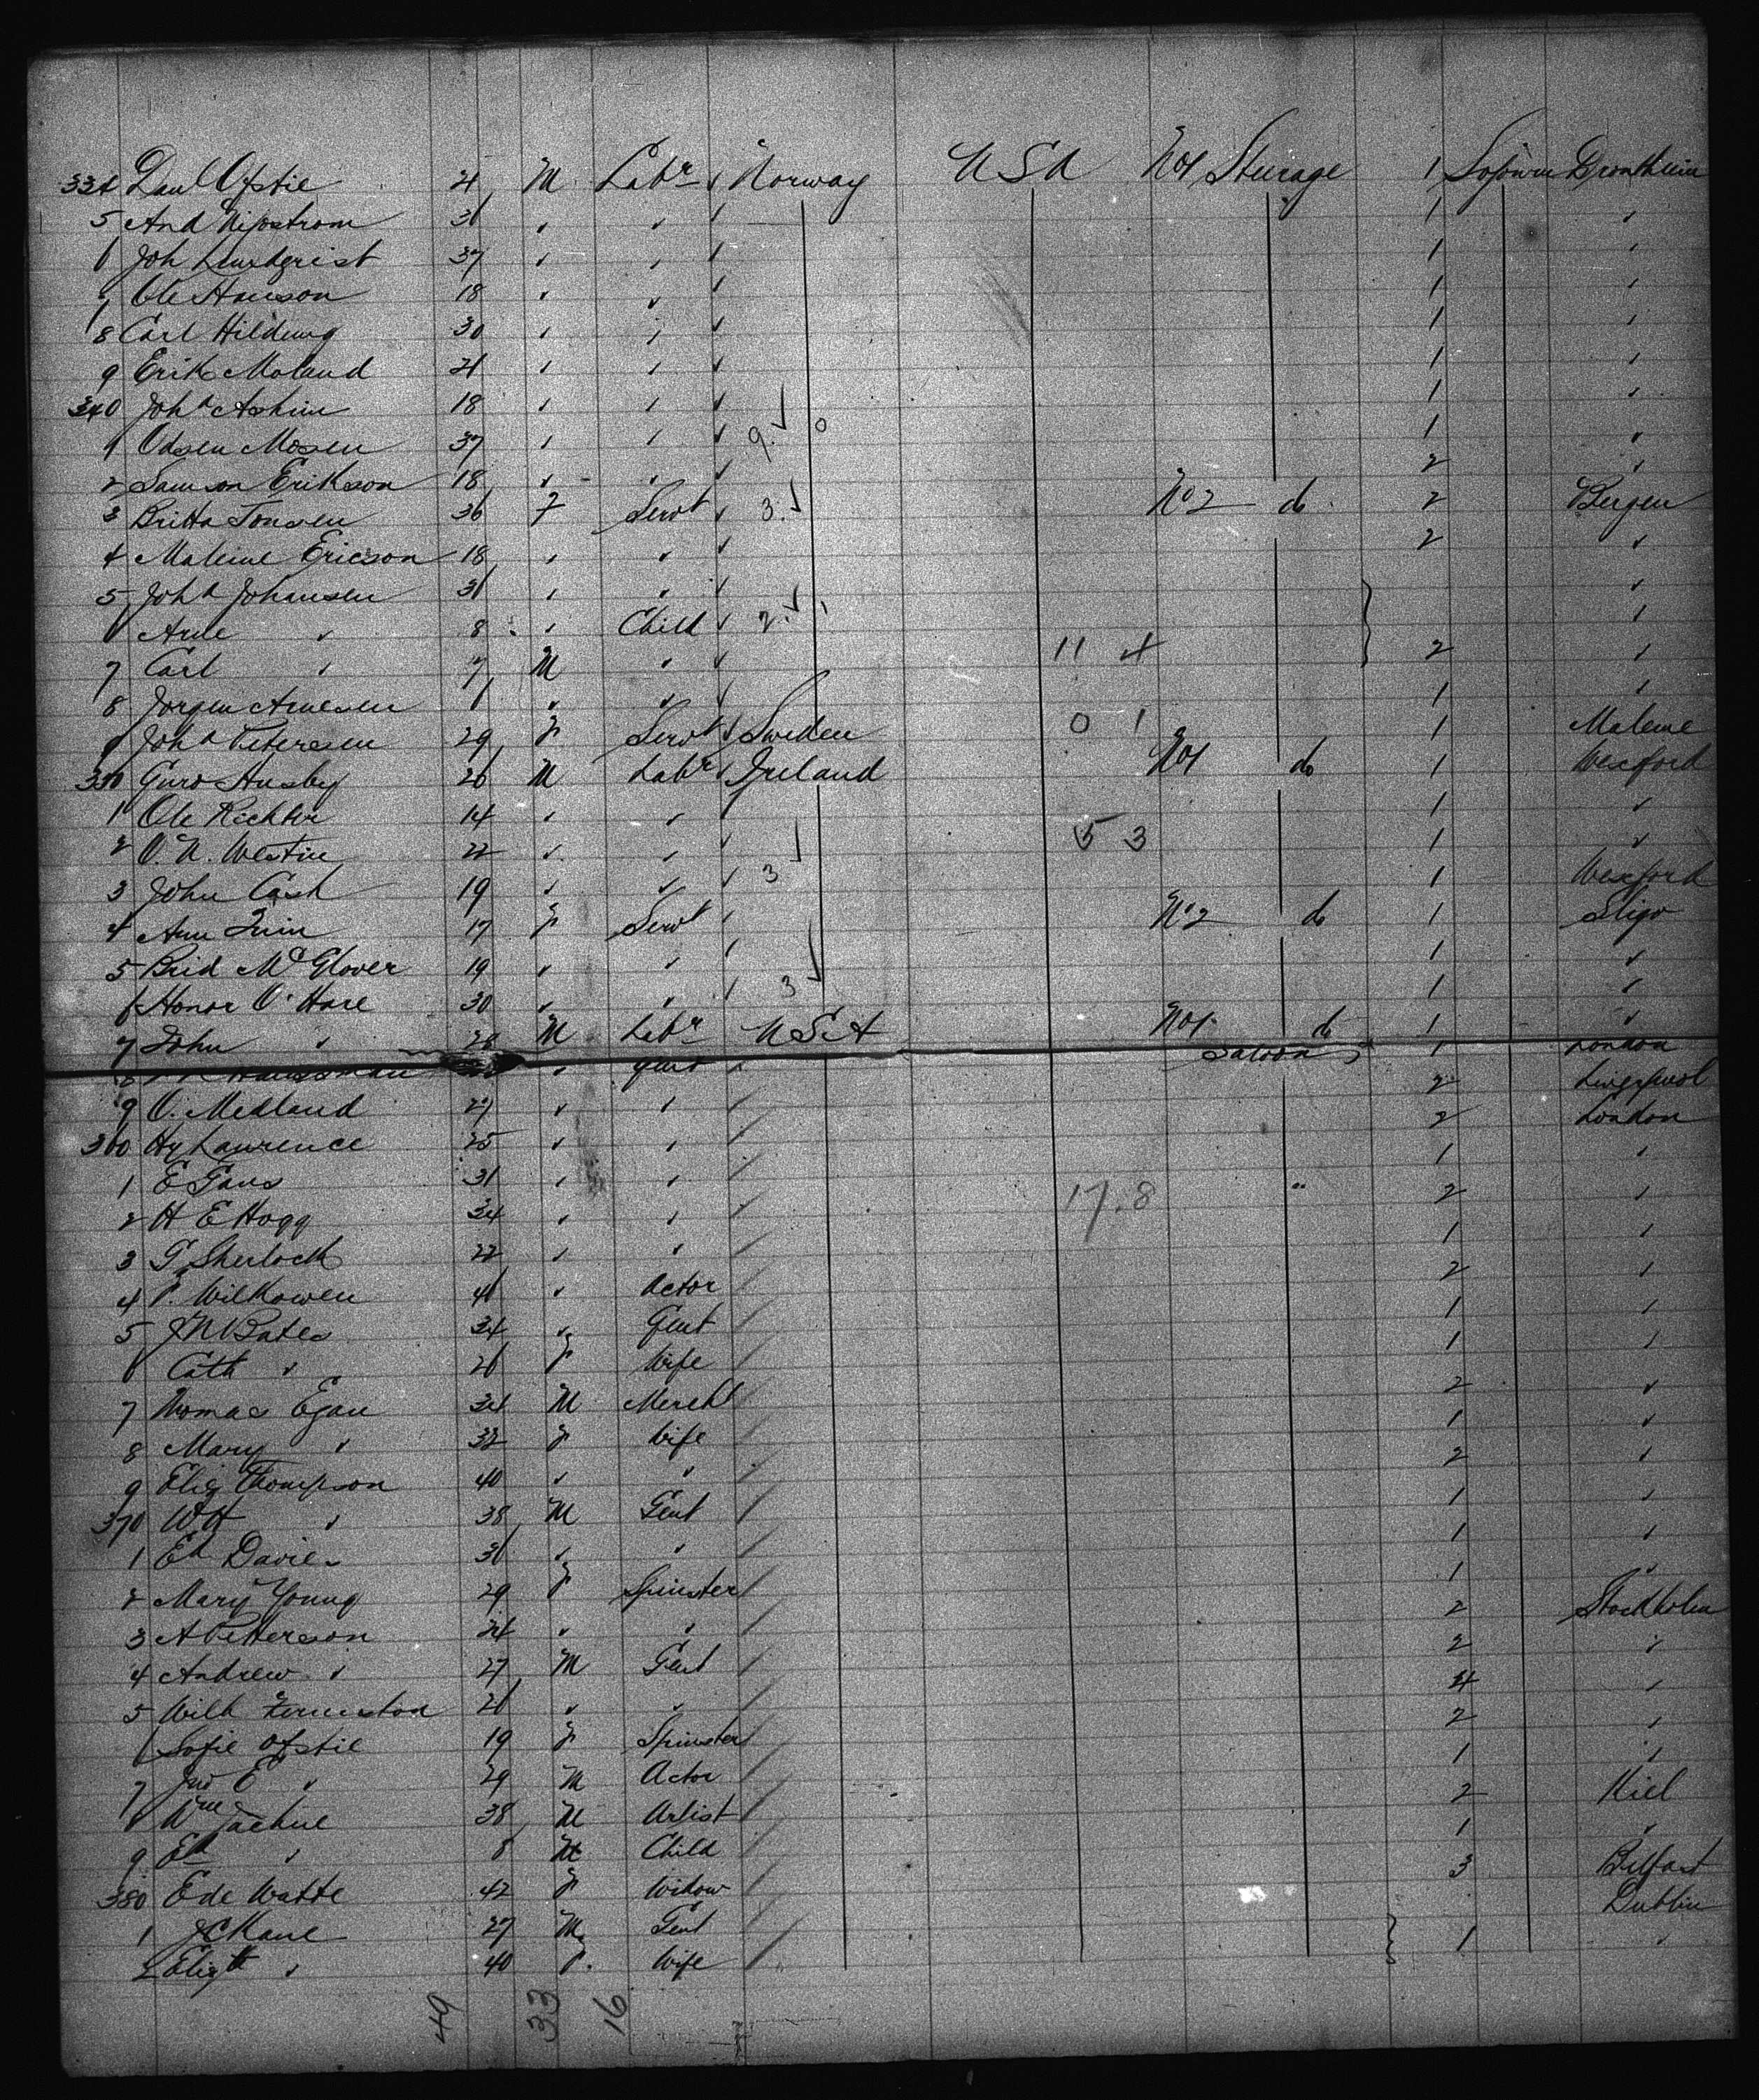 334 Paul Ofstie 21 M Labr ✓ Norway USA No1 Steerage 1 Sojourn Drontheim
5 And Nipstrom 36 " " ✓ 1 "
6 Joh Lundqrist 37 " " ✓ 1 "
7 Ole Hanson 18 " " ✓ 1 "
8 Carl Hildung 30 " " ✓ 1 "
9 Erik Moland 21 " " ✓ 1 "
340 Joha Ashim 18 " " ✓ 1 "
1 Odsen Mosen 37 " " ✓ 9. ✓ 0 1 "
2 Samson Erikson 18 " " ✓ 2 "
3 Britta Jonsen 36 F Servt ✓ 3. ✓ No2 do 2 Bergen
4 Maleine Ericson 18 " " ✓ 2 "
5 Joha Johansen 36 " " ✓ "
6 Arne " 8 " Child ✓ 2. ✓ "
7 Carl " 7 M " ✓ 11 4 2 "
8 Jorgen Arnesen 6 " " ✓ 1 "
9 Joha Petersen 29 F Servt ✓ Sweden 0 1 1 Maleme
350 Guro Husby 26 M Labr ✓ Ireland No1 do 1 Wexford
1 Ole Richter 14 " " 1 "
2 O. N. Westin 22 " " ✓ 5 3 1 "
3 John Cash 19 " " ✓ 3 1 Wexford
4 Ann Quin 17 F Servt No2 do 1 Sligo
5 Brid McGlover 19 " " ✓ 1 "
6 Honor O'Hare 30 " " 3 1 "
7 John " 28 M Labr USA No1 do 1 "
8 " Gent Saloon 1 London
9 O. Medland 27 " " 2 Liverpool
360 Hy Lawrence 25 " " 2 London
1 E Gans 31 " " 1 "
2 H E Hogg 34 " " 17.8 " 2 "
3 G Sherlock 22 " " 1 "
4 P. Wilkowen 41 " Actor 2 "
5 J N Bates 34 " Gent 1 "
6 Cath " 26 F Wife 1 "
7 Thomas Egan 34 M Mercht 2 "
8 Mary " 32 F Wife 1 "
9 Eliz Thompson 40 " " 2 "
370 WH " 38 M Gent 1 "
1 Ed Davies 36 " " 1 "
2 Mary Young 29 F Spinster 1 "
3 A Petterson 24 " " 2 Stockholm
4 Andrew " 27 M Gent 2 "
5 Wilh 26 " " 4 "
6 Sofie Ofstie 19 F Spinster 2 "
7 Jno E " 29 M Actor 1 "
8 Wm Jachne 38 M Artist 2 Kiel
9 Ed " 8 M Child 1 "
380 E de Watte 42 F Widow 3 Belfast
1 J C Kane 27 M Gent Dublin
2 Elizth " 40 F. Wife 1 "
49 33 16